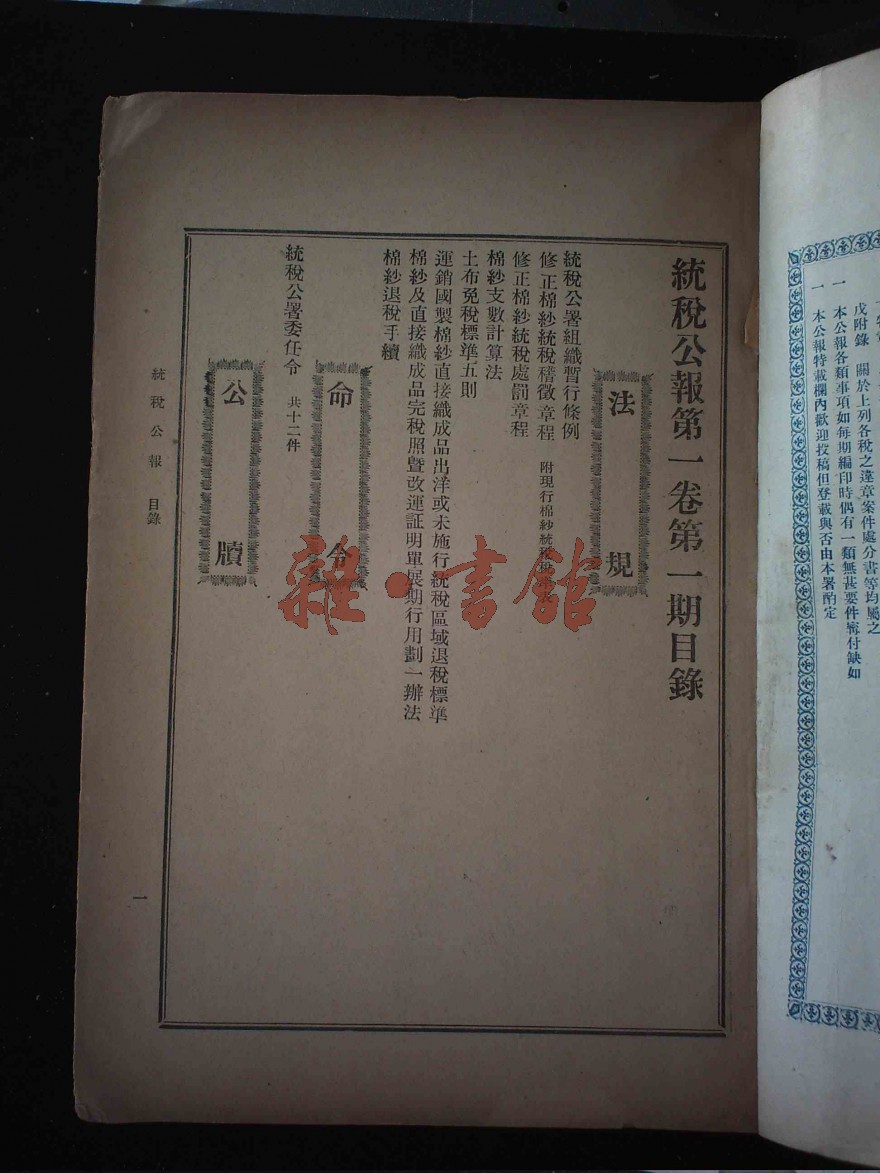 戊附錄　關於上列各稅之違章案件處分書等均屬之
一　本公報各類事項如每期編印時偶有一類無甚要件審付缺如
一　本公報特載欄內歡迎投稿但登載與否由本署酌定
統稅公報第一卷第一期目錄
法規
統稅公署組織暫行條例
修正棉紗統稅稽徵章程　附現行棉紗統稅稅
修正棉紗統稅處罰章程
棉紗支數計算法
土布免稅標準五則
運銷國製棉紗直接織成品出洋或未施行統稅區域退稅標準
棉紗及直接織成品完稅照暨改運証明單展期行用劃一辦法
棉紗退稅手續
命令
統稅公署委任令　共十二件
公牘
統稅公報　目錄
一
雜·書館